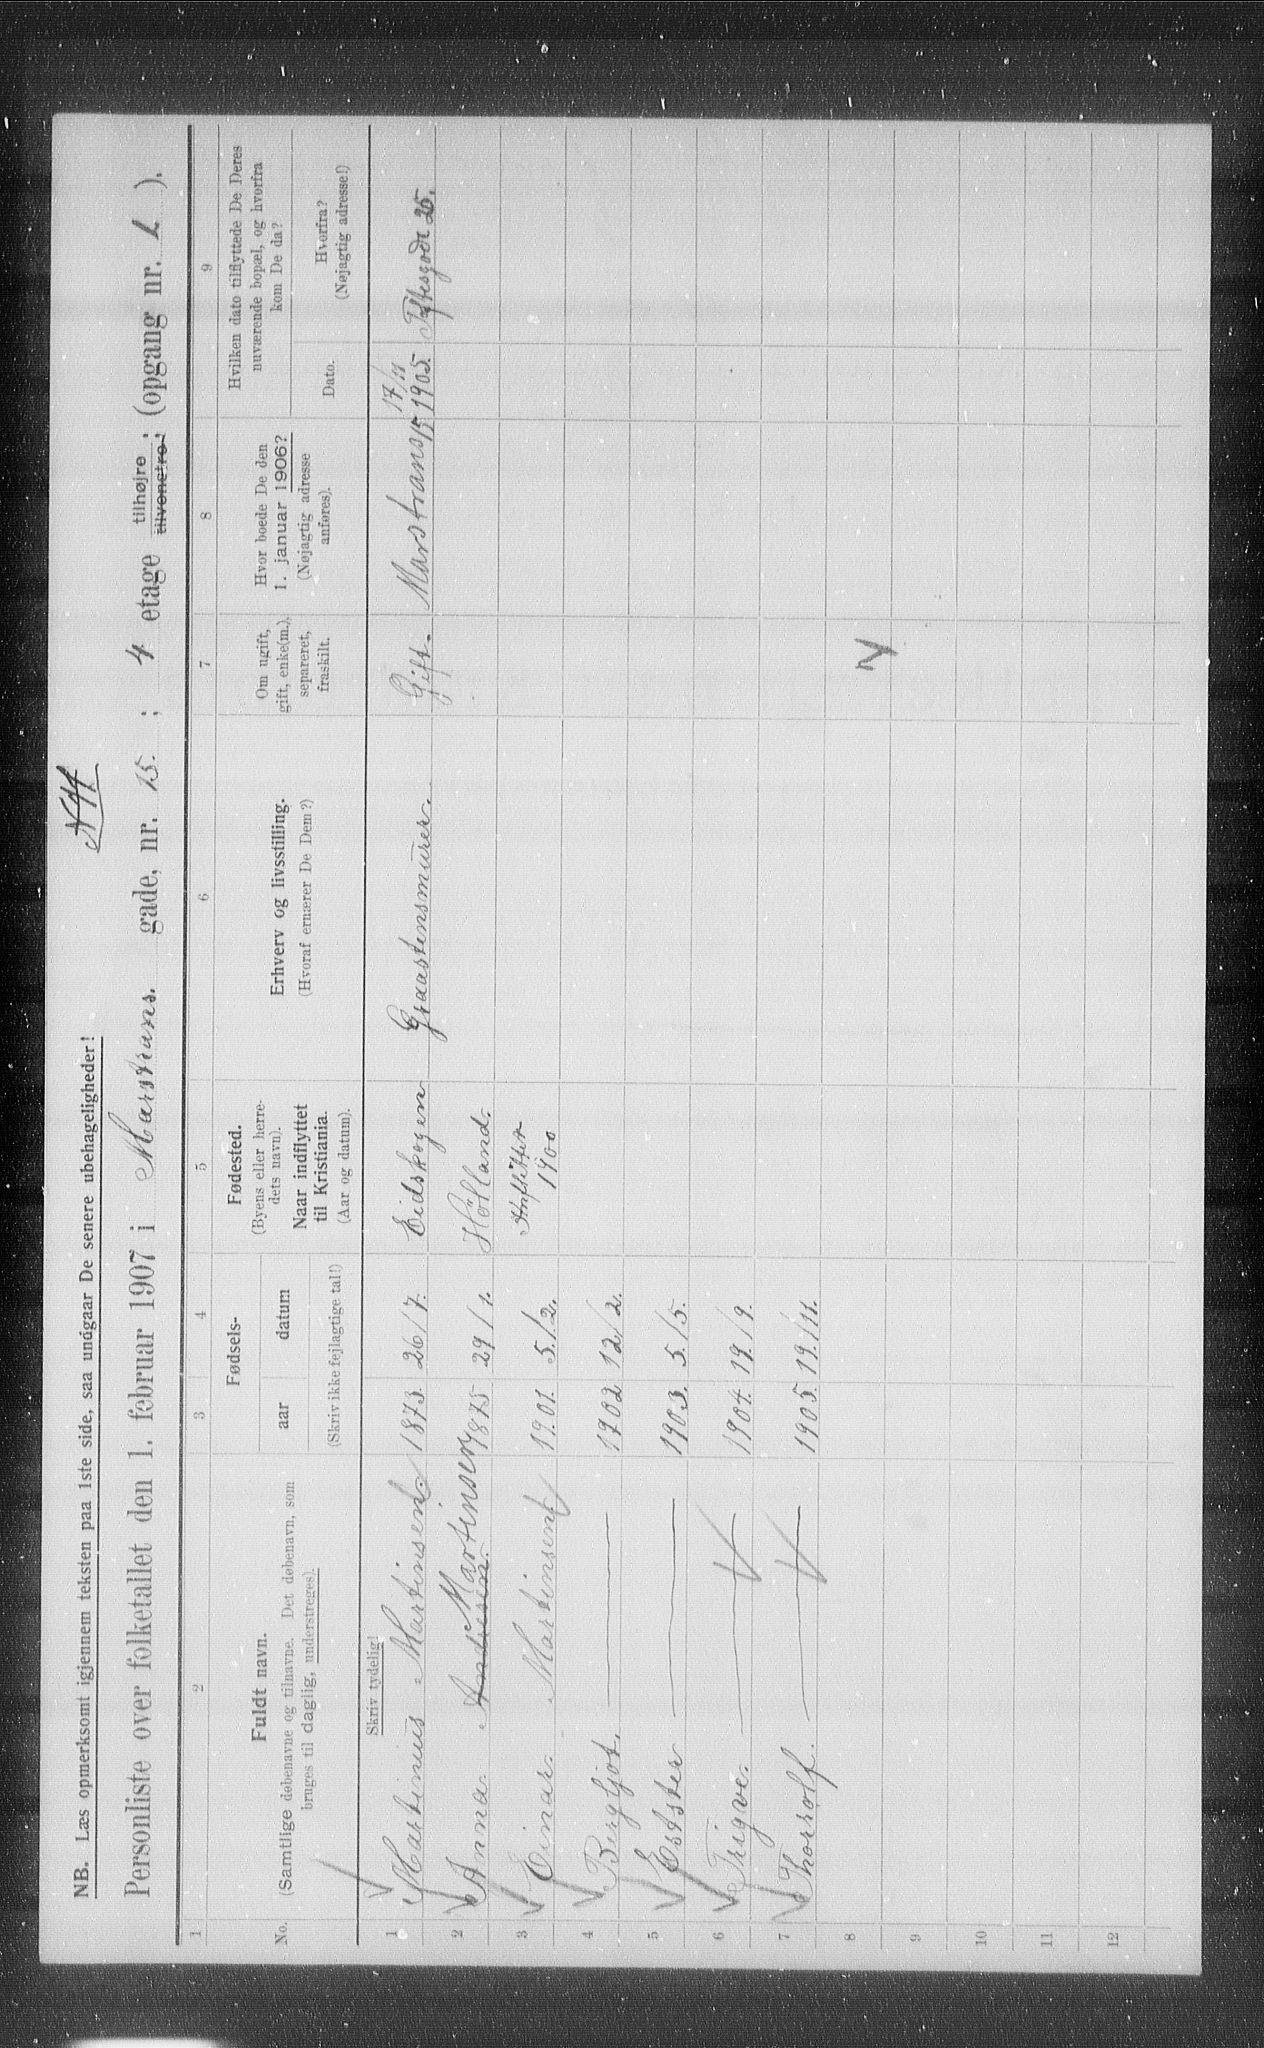 NB. Læs opmerksomt igjennem teksten paa 1ste side, saa undgaar De senere ubehageligheder!
Personliste over folketallet den 1. februar 1907 i Marstrans. gade, nr. 15. ; 4 etage tilhøjre ; tilvenstre ; (opgang nr. ).
1 2 3 4 5 6 7 8 9
No.
Fuldt navn.
(Samtlige døbenavne og tilnavne. Det døbenavn, som
bruges til daglig, understreges).
Fødsels-
aar datum
(Skriv ikke fejlagtige tal!)
Fødested.
(Byens eller herre-
dets navn).
Naar indflyttet
til Kristiania.
(Aar og datum).
Erhverv og livsstilling.
(Hvoraf ernærer De Dem?)
Om ugift,
gift, enke(m.),
separeret,
fraskilt.
Hvor boede De den
1. januar 1906?
(Nøjagtig adresse
anføres).
Hvilken dato tilflyttede De Deres
nuværende bopæl, og hvorfra
kom De da?
Dato.
Hvorfra?
(Nøjagtig adresse!)
Skriv tydelig!
1 Martinius Martinsen. 1873. 26/7. Eidskogen Graastensmurer. Gift. Marstrans 15 17/11 1905. Toftesgade 25.
2 Anna. Andresen. Martinsen 1875 29/1. Höland.
3 Einar. Martinsen 1901. 5/2. 1900
4 Bergljot. — 1902 12/2.
5 Eshster — 1903. 5/5.
6 Trigve. — 1904. 19/9.
7 Thorolf. — 1905. 19/11.
8
9
10
11
12